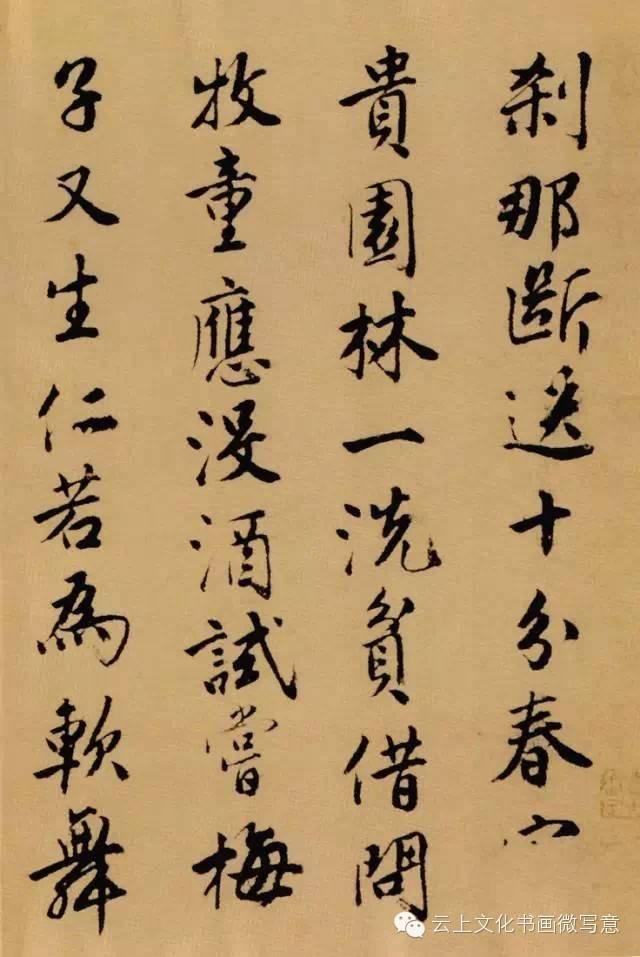 刹那斷送十分春
貴園林一洗貧借問
牧童應没酒試嘗梅
子又生仁若為軟舞
云上文化书画微写意